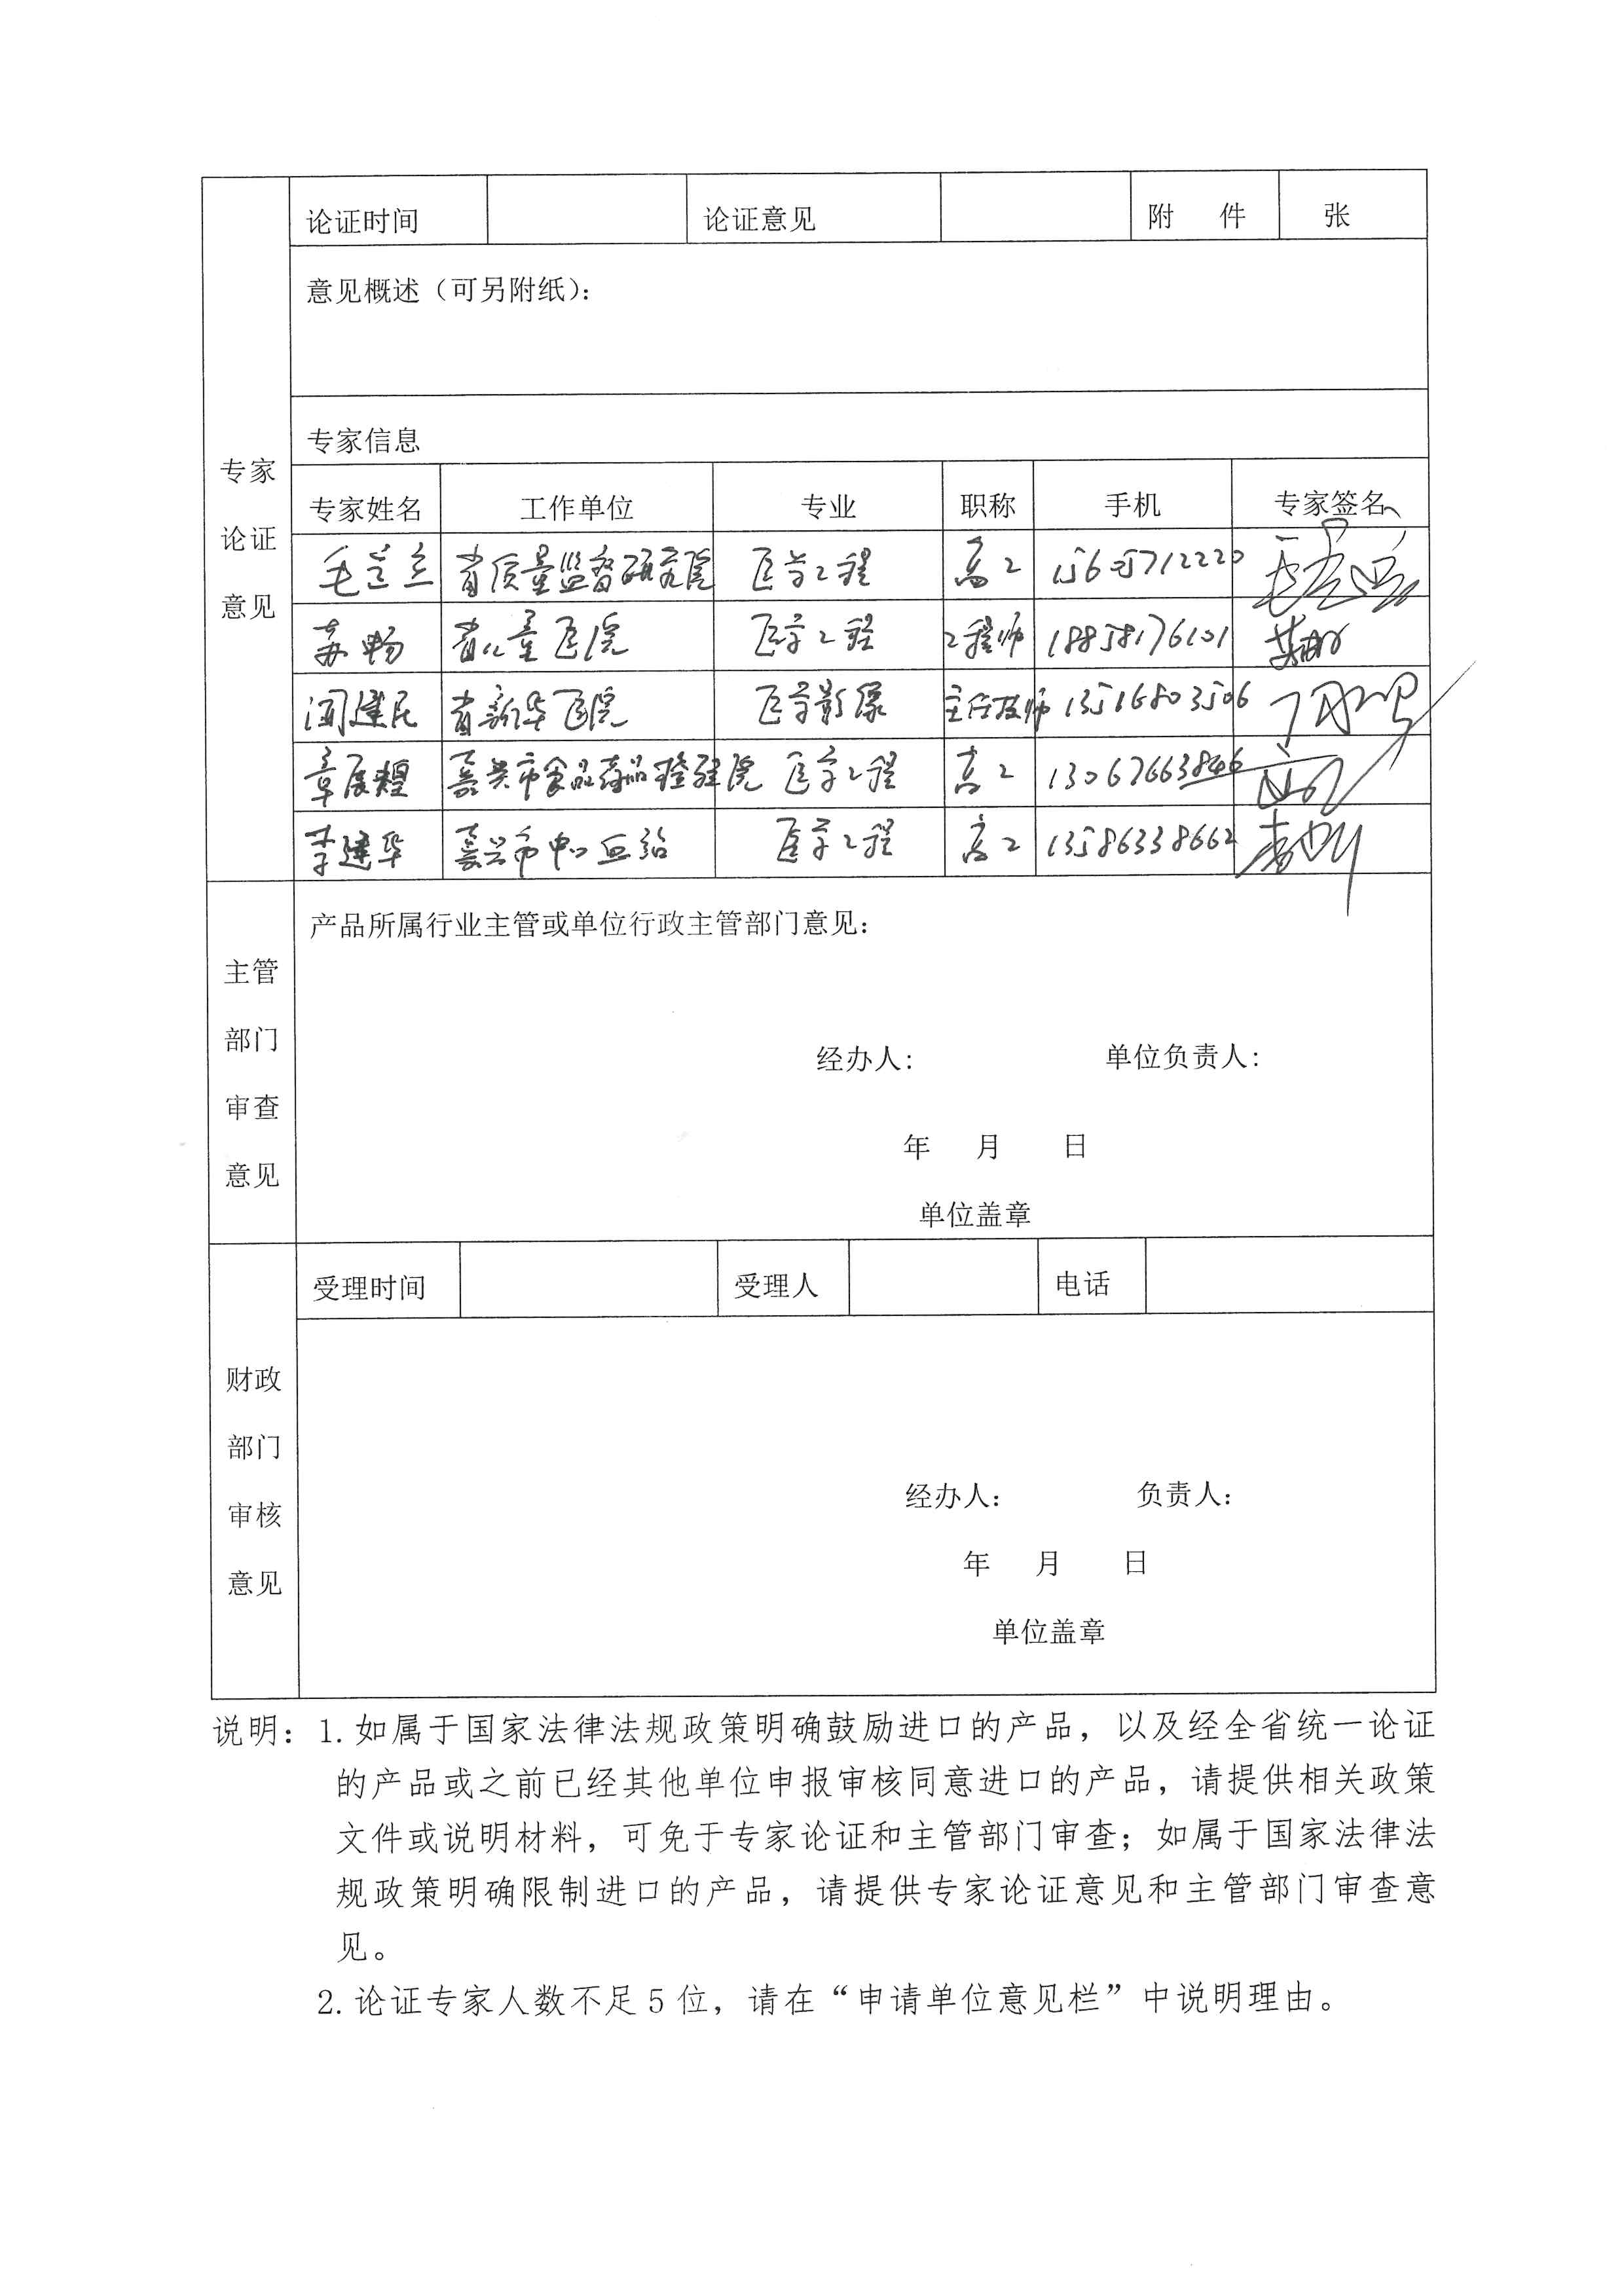 论证时间 论证意见 附 件 张
意见概述（可另附纸）：
专家信息
专家论证意见
专家姓名 工作单位 专业 职称 手机 专家签名
毛兰 省质量监督研究院 医学工程 高工
苏畅 省儿童医院 医学工程 工程师 18858176101
闻建民 省新华医院 医学影像 主任技师 13516803506
章展煌 嘉兴市食品药品检验院 医学工程 高工 13067663846
李建华 嘉兴市中心血站 医学工程 高工 13586338662
主管部门审查意见
产品所属行业主管或单位行政主管部门意见：
经办人： 单位负责人：
年 月 日
单位盖章
受理时间 受理人 电话
财政部门审核意见
经办人： 负责人：
年 月 日
单位盖章
说明：1.如属于国家法律法规政策明确鼓励进口的产品，以及经全省统一论证
的产品或之前已经其他单位申报审核同意进口的产品，请提供相关政策
文件或说明材料，可免于专家论证和主管部门审查；如属于国家法律法
规政策明确限制进口的产品，请提供专家论证意见和主管部门审查意
见。
2.论证专家人数不足5位，请在“申请单位意见栏”中说明理由。